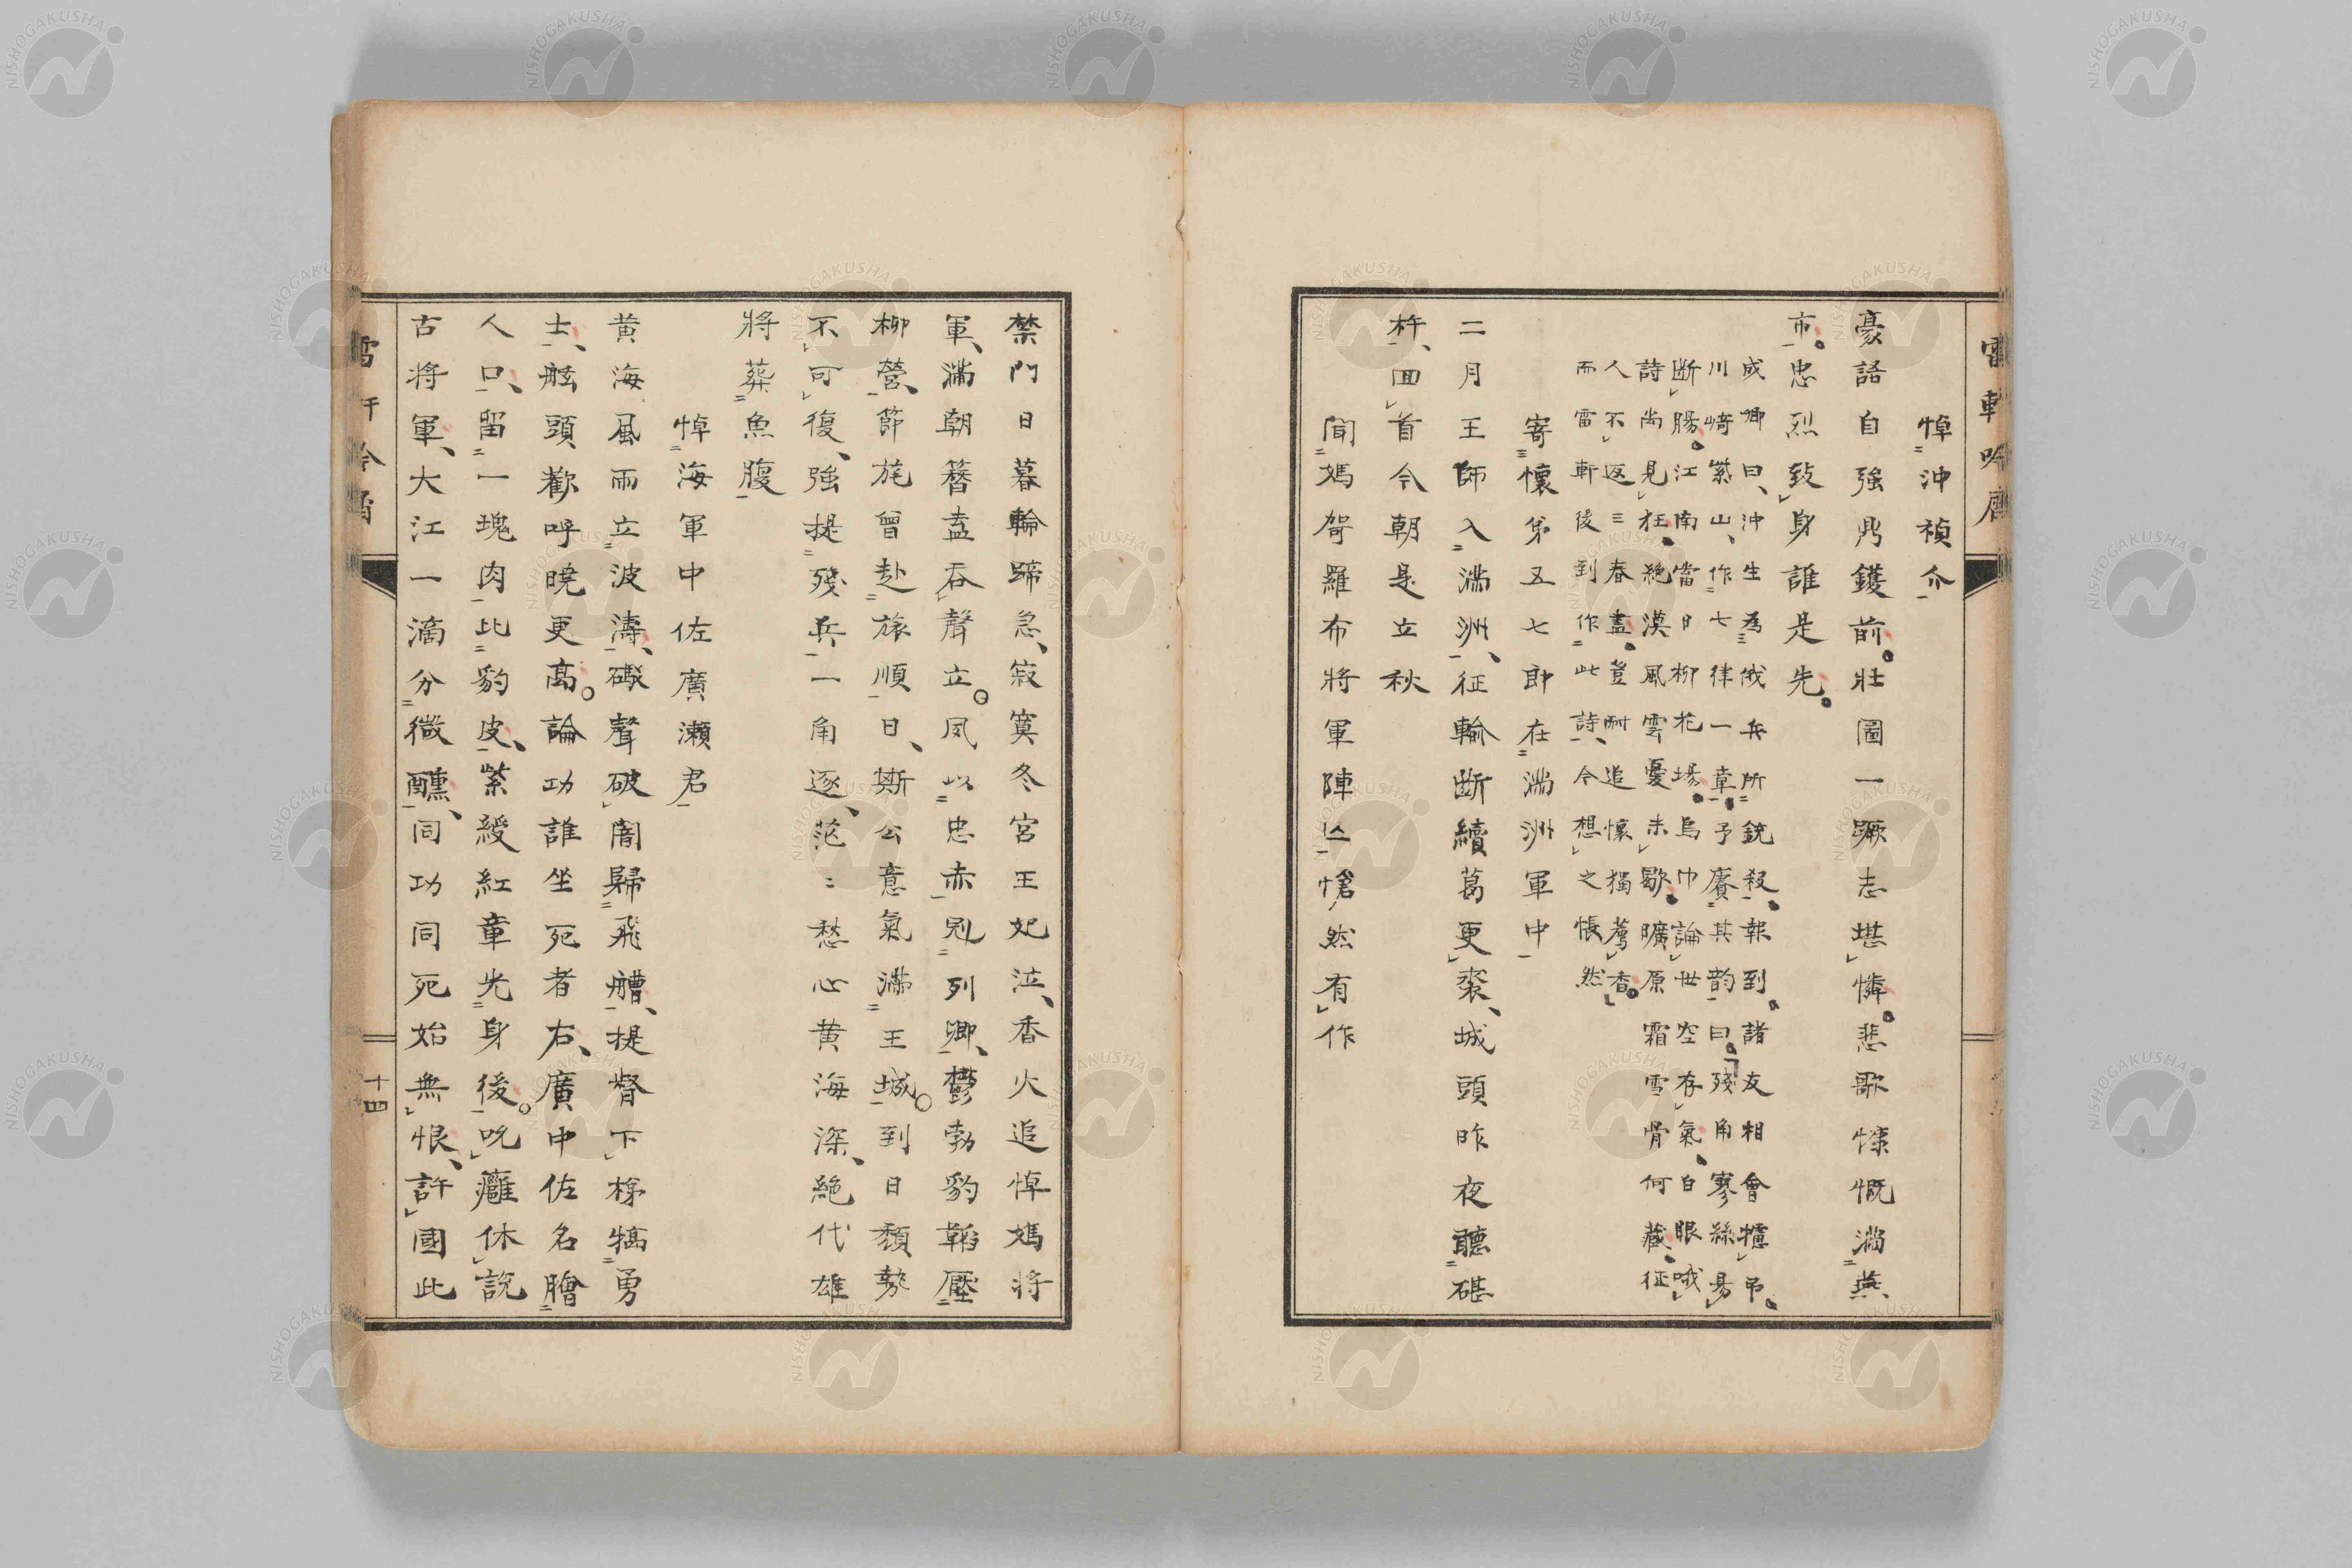 悼沖禎介
豪語自強鼎鑊前壯圖一蹶志堪憐悲歌慷慨滿燕
市忠烈致身誰是先
成卿曰沖生為俄兵所銃殺報到諸友相會悽弔
川崎紫山作七律一章予賡其韵曰殘角寒絲易
断腸江南當日柳花場烏巾論世空存氣白眼哦
詩尚見狂絶漠風雲憂未歇曠原霜雪骨何藏征
人不返三春盡豈耐追懷獨薦香
而雷軒後到作此詩今想之悵然
寄懷弟五七郎在滿洲軍中
二月王師入滿洲征輪断續葛更裘城頭昨夜聽碪
杵回首今朝是立秋
聞媽哿羅布將軍陣亡愴然有作
禁門日暮輪蹄急寂寞冬宮王妃泣香火追悼媽將
軍滿朝簪盍吞聲立夙以忠赤冠列卿鬱勃豹韜壓
柳營節旄曾赴旅順日斯公意氣滿王城到日頽勢
不可復強提殘兵一角逐茫〻愁心黄海深絶代雄
將葬魚腹
悼海軍中佐廣瀬君
黄海風雨立波濤礮聲破闇歸飛艚提督下梯犒勇
士舷頭歡呼曉更高論功誰坐死者右廣中佐名膾
人口留一塊肉此豹皮紫綬紅章光身後吮癰休説
古將軍大江一滴分微醺同功同死始無恨許國此
雷軒吟屑
十四
NISHOGAKUSHA